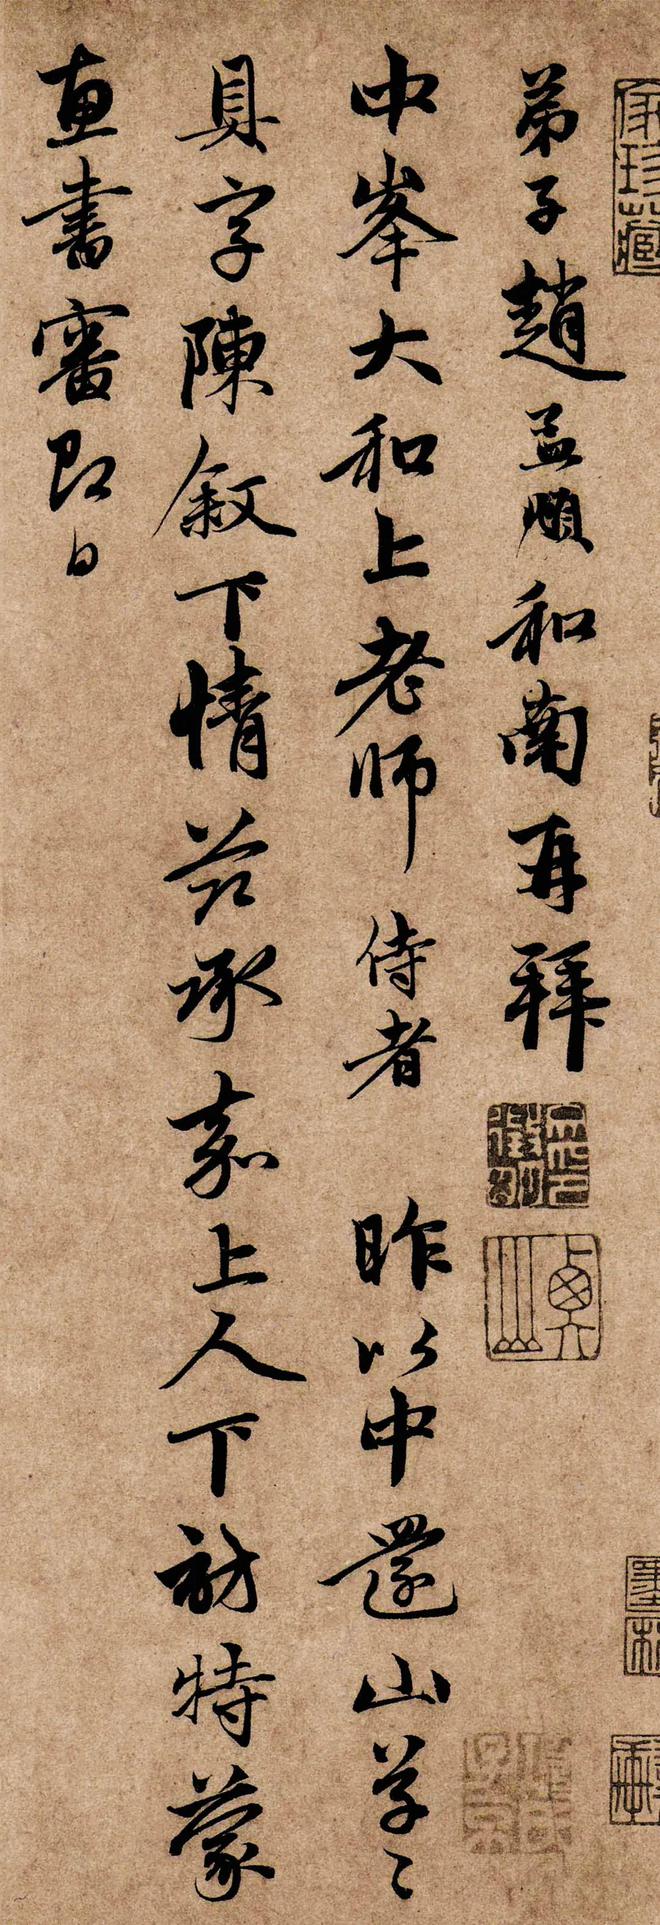 弟子趙孟頫和南再拜
中峯大和上老師 侍者 昨以中還山草〻
具字陳叙下情茲承嘉上人下訪特蒙
惠書審即日